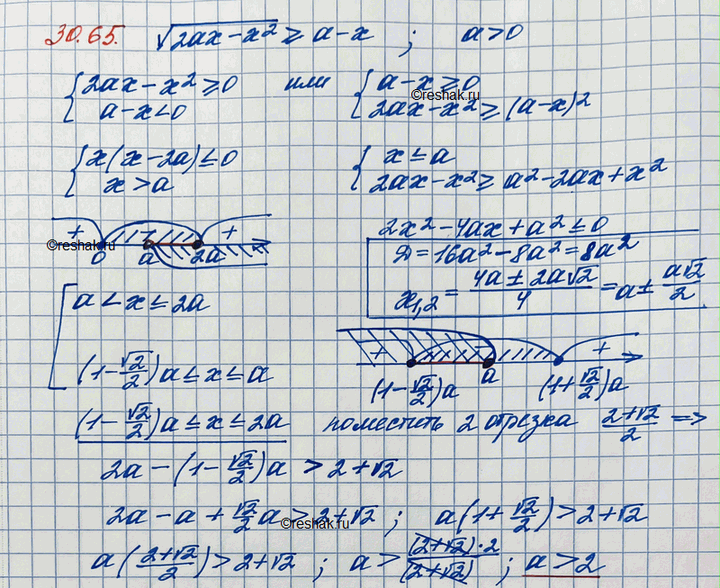 30.65. √(2ax-x²) ≥ a-x ; a>0
{ 2ax-x² ≥ 0 или { a-x ≥ 0
a-x<0 2ax-x² ≥ (a-x)²
©reshak.ru
{ x(x-2a) ≤ 0 { x ≤ a
x>a 2ax-x² ≥ a²-2ax+x²
2x²-4ax+a² ≤ 0
+ + 
©reshak.ru
0 a 2a
Д=16a²-8a²=8a²
x₁,₂ = (4a±2a√2)/4 = a± (a√2)/2
[ a<x≤2a
(1-√2/2)a ≤ x ≤ a
+ +
(1-√2/2)a a (1+√2/2)a
(1-√2/2)a ≤ x ≤ 2a поместить 2 отрезка (2+√2)/2 =>
2a-(1-√2/2)a > 2+√2
2a-a+√2/2a > 2+√2 ; a(1+√2/2) > 2+√2
©reshak.ru
a((2+√2)/2) > 2+√2 ; a > ((2+√2)·2)/(2+√2) ; a>2